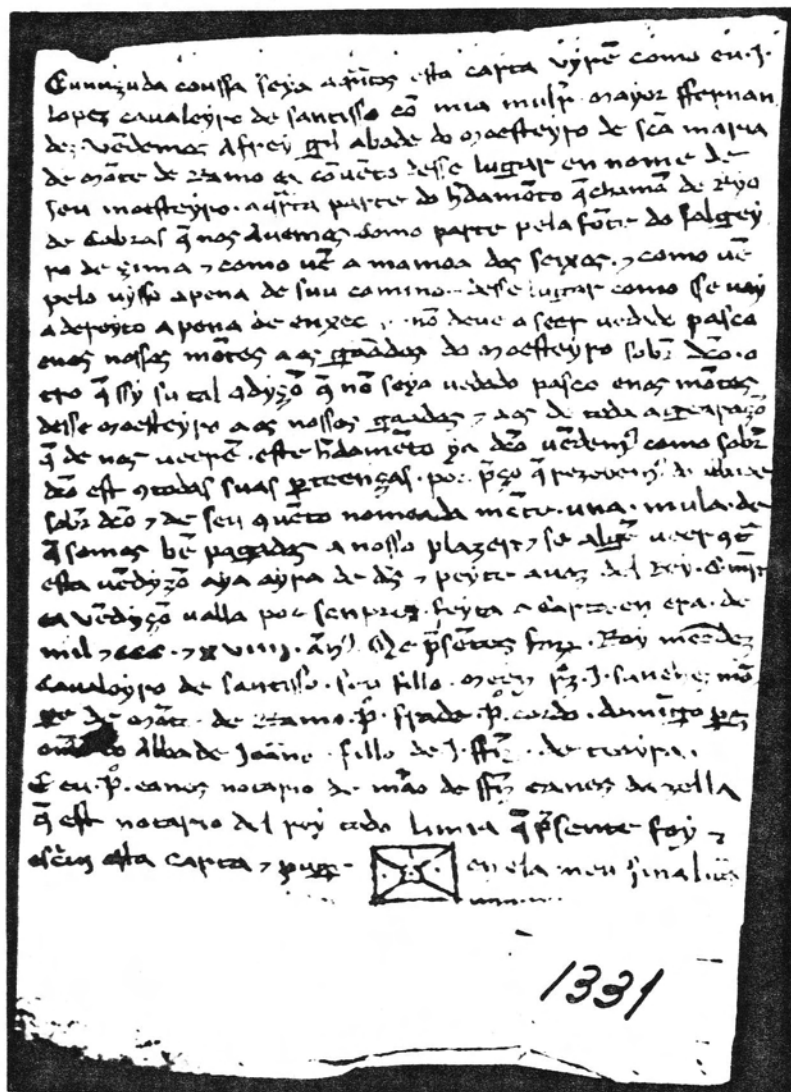 Cunuzuda coussa seya a qntos esta carta vyrē como eu .J.
lopez cavaleyro de santisso cō mia mulr mayor ffernan
dez vēdemos a frey gil abade do moesteyro de scā maria
de mōte de rramo τ a cōvēto desse lugar en nome de
seu moesteyro . a qrta parte do hdamēto q chamā de Ryo
de Cabras q nos avemos como parte pela fōte do salgey
ro de çima τ como vē a mamoa dos seixos . τ como vē
pelo vysso a pena de suu camino . desse lugar como sse vay
a dereyto a pena de enxec . nō deve a seer vedado pasco
enos nossos mōtes aos gaādos do moesteyro sobr dco . o
tro q ssy su tal 9dyçō q nō seya vedado pasco enos mōtes
desse moesteyro aos nossos gaados τ aos de toda a geeraçō
q de nos veerē . este hdamēto ya dco vēdem9 como sobr
dco est 9 todas suas perteenças . por pço q rezebem9 do abade
sobr dco τ de seu 9vēto nomeada mēte . una . mula . de
q somos bē pagados a nosso plazer τ se algē veer 9t
esta vēdyçō aya a yra de ds τ peyte a voz del Rey .
a vēdiçō valla por senpre . feyta a carta en era . de
mil τ CCC . τ XVIIII . an9 . psentes . Roy mēdez
cavaleyro de santisso . seu fillo . J . sanchez mō
ge de mōte de rramo . po . frade . po . cordo . domīgo perez
ome do Abbade Joāne . fillo de J . ffiz . de
E eu . po . eanes notario de māo de ffiz eanes da zella
q est notario del rey en todo limia q psente foy τ
escvy esta carta τ puge en ela meu sinal
1331